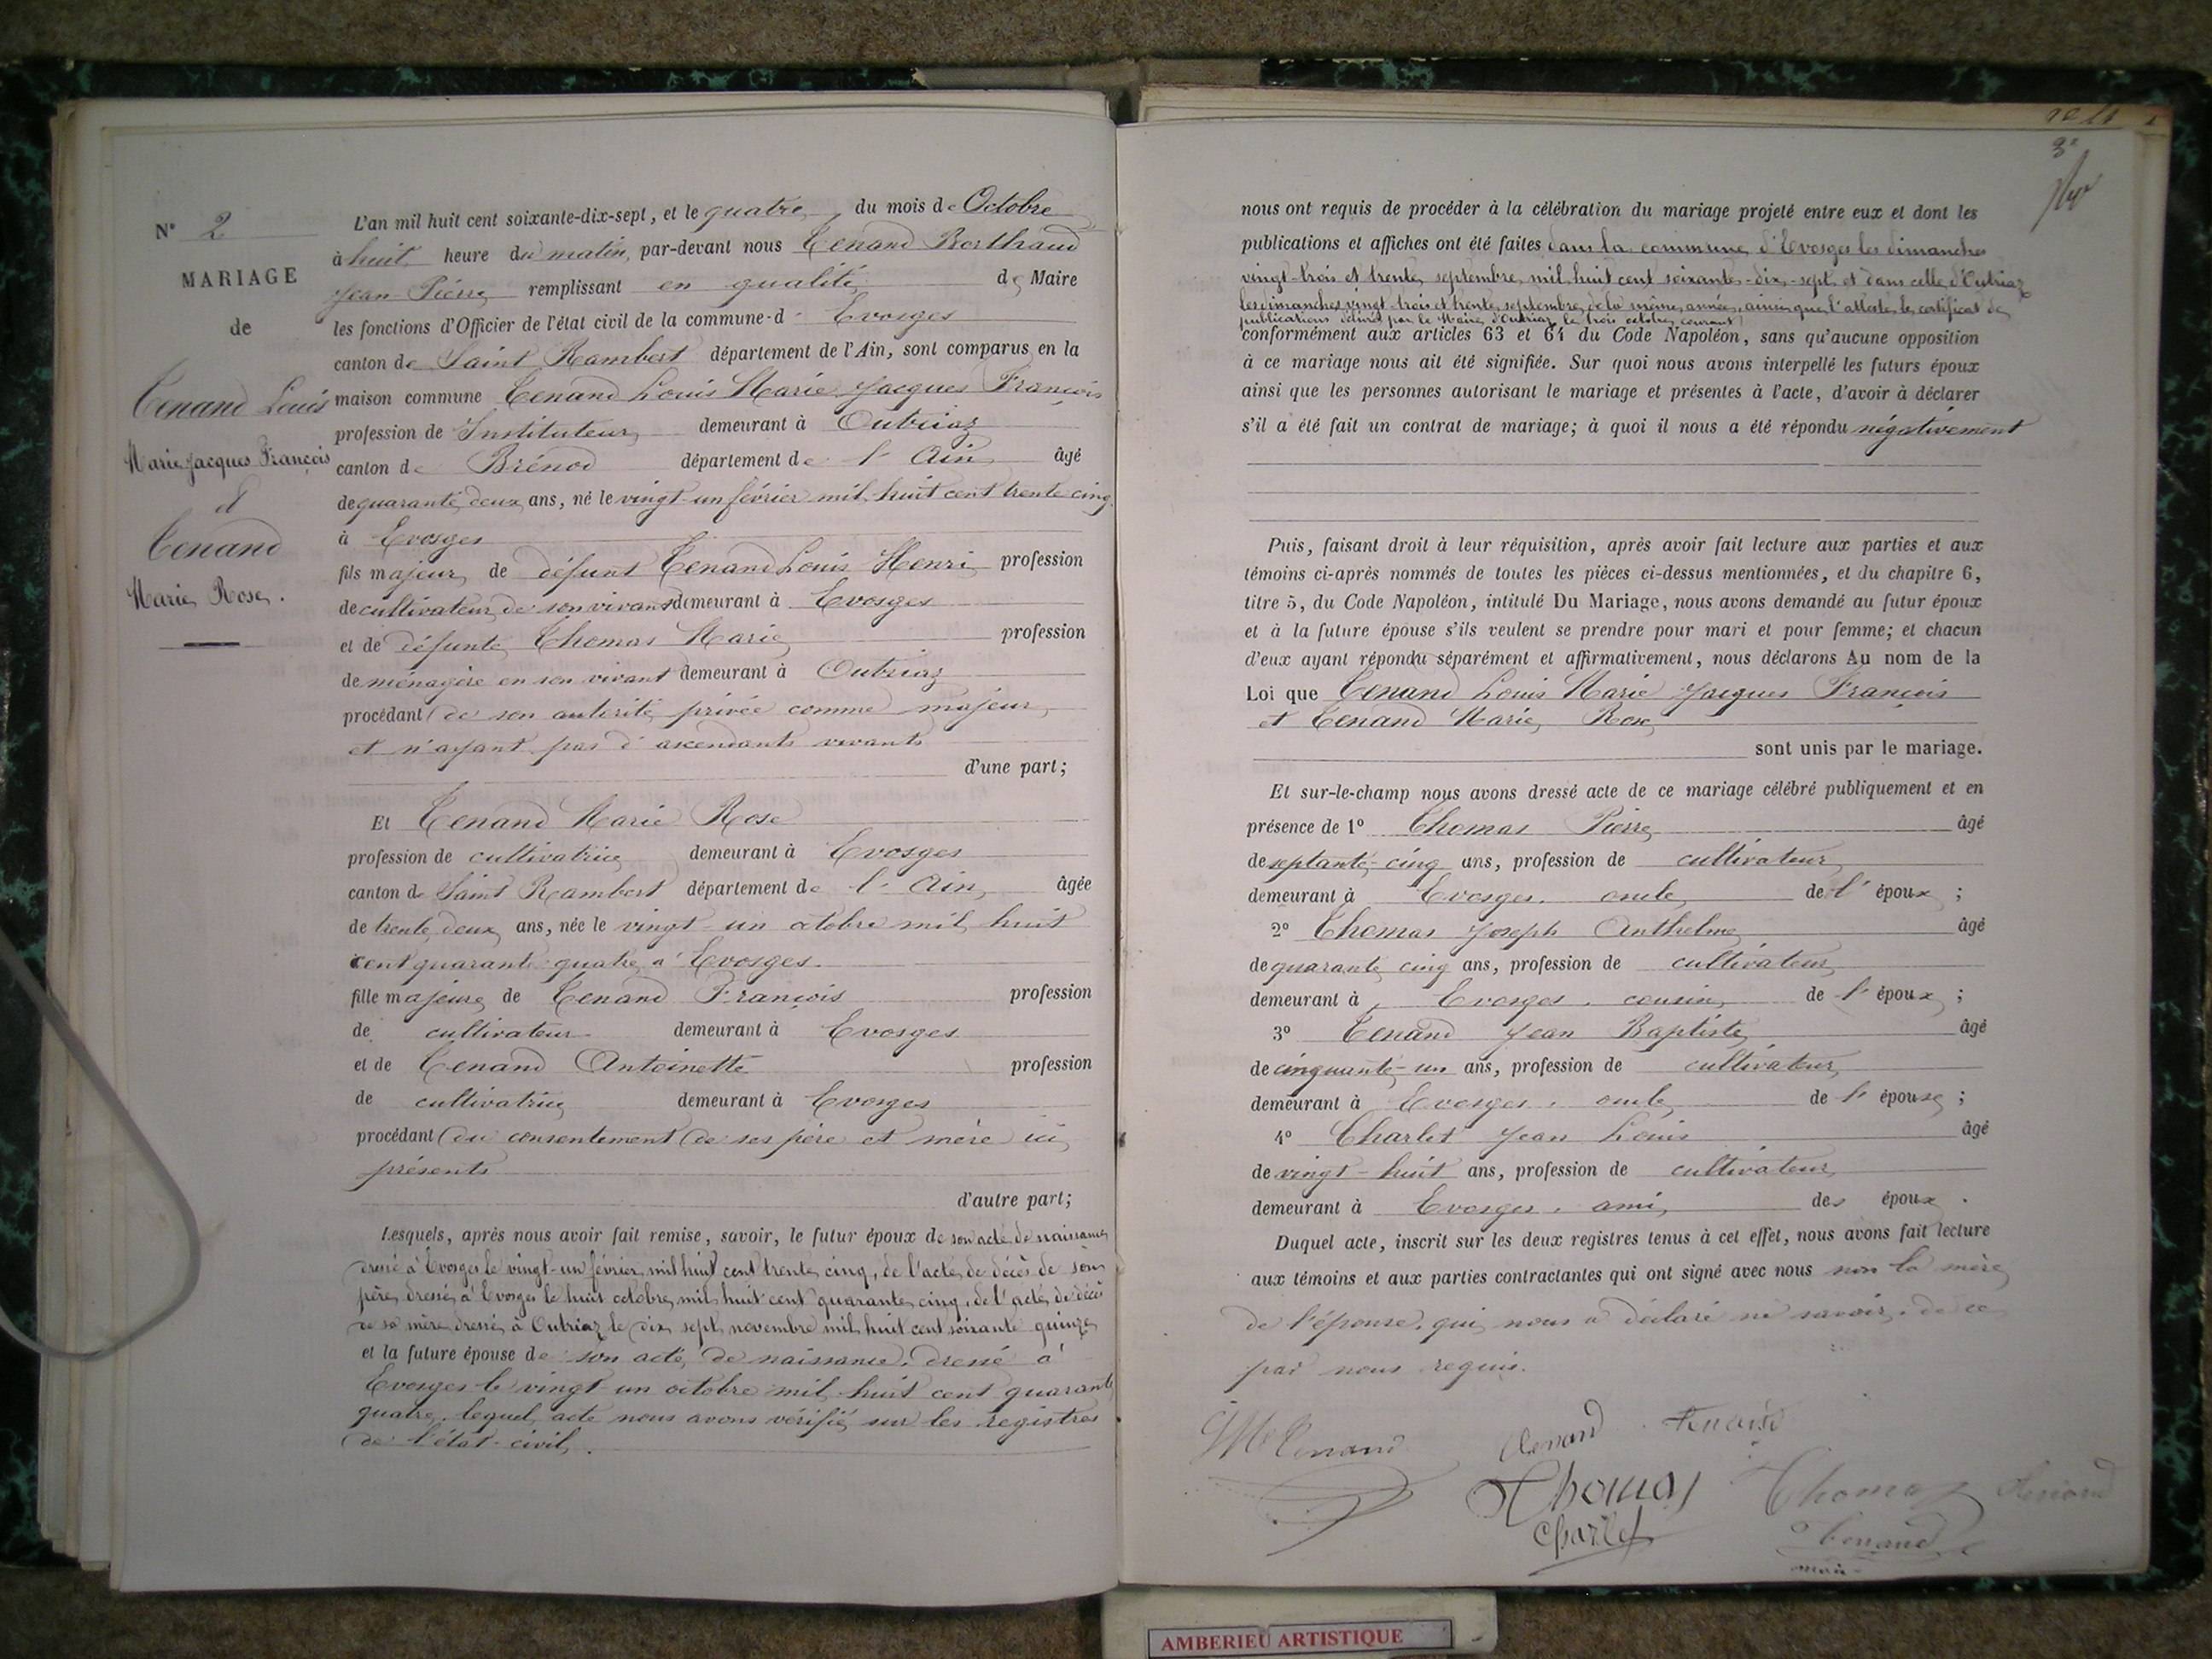 N° 2
MARIAGE
de
Tenand Louis
Marie Jacques François
et
Tenand
Marie Rose.
L'an mil huit cent soixante-dix-sept, et le quatre du mois de Octobre
à huit heure du matin, par-devant nous Tenand Berthaud
Jean Pierre remplissant en qualité de Maire
les fonctions d'Officier de l'état civil de la commune d' Evosges
canton de Saint Rambert département de l'Ain, sont comparus en la
maison commune Tenand Louis Marie Jacques François
profession de Instituteur demeurant à Outriaz
canton de Brénod département de l'Ain âgé
de quarante deux ans, né le vingt-un février mil huit cent trente cinq
à Evosges
fils majeur de défunt Tenand Louis Henri profession
de cultivateur de son vivant demeurant à Evosges
et de défunte Thomas Marie profession
de ménagère en son vivant demeurant à Outriaz
procédant de son autorité privée comme majeur
et n'ayant pas d'ascendants vivants
d'une part;
Et Tenand Marie Rose
profession de cultivatrice demeurant à Evosges
canton de Saint Rambert département de l'Ain âgée
de trente deux ans, née le vingt-un octobre mil huit
cent quarante quatre à Evosges.
fille majeure de Tenand François profession
de cultivateur demeurant à Evosges
et de Tenand Antoinette profession
de cultivatrice demeurant à Evosges
procédant du consentement de ses père et mère ici
présents
d'autre part;
Lesquels, après nous avoir fait remise, savoir, le futur époux de son acte de naissance
dressé à Evosges le vingt-un février mil huit cent trente cinq, de l'acte de décès de son
père dressé à Evosges le huit octobre mil huit cent quarante cinq, de l'acte de décès
de sa mère dressé à Outriaz le dix sept novembre mil huit cent soixante quinze
et la future épouse de son acte de naissance dressé à
Evosges le vingt-un octobre mil huit cent quarante
quatre, lequel acte nous avons vérifié sur les registres
de l'état-civil.
nous ont requis de procéder à la célébration du mariage projeté entre eux et dont les
publications et affiches ont été faites dans la commune d'Evosges les dimanches
vingt-trois et trente septembre mil huit cent soixante-dix-sept et dans celle d'Outriaz
les dimanches vingt-trois et trente septembre de la même année, ainsi que l'atteste le certificat de
publications délivré par le Maire d'Outriaz le trois octobre courant
conformément aux articles 63 et 64 du Code Napoléon, sans qu'aucune opposition
à ce mariage nous ait été signifiée. Sur quoi nous avons interpellé les futurs époux
ainsi que les personnes autorisant le mariage et présentes à l'acte, d'avoir à déclarer
s'il a été fait un contrat de mariage; à quoi il nous a été répondu négativement
Puis, faisant droit à leur réquisition, après avoir fait lecture aux parties et aux
témoins ci-après nommés de toutes les pièces ci-dessus mentionnées, et du chapitre 6,
titre 5, du Code Napoléon, intitulé Du Mariage, nous avons demandé au futur époux
et à la future épouse s'ils veulent se prendre pour mari et pour femme; et chacun
d'eux ayant répondu séparément et affirmativement, nous déclarons Au nom de la
Loi que Tenand Louis Marie Jacques François
et Tenand Marie Rose
sont unis par le mariage.
Et sur-le-champ nous avons dressé acte de ce mariage célébré publiquement et en
présence de 1° Thomas Pierre âgé
de septante-cinq ans, profession de cultivateur
demeurant à Evosges. oncle de l'époux;
2° Thomas Joseph Anthelme âgé
de quarante cinq ans, profession de cultivateur
demeurant à Evosges. cousin de l'époux;
3° Tenand Jean Baptiste âgé
de cinquante-un ans, profession de cultivateur
demeurant à Evosges. oncle de l'épouse;
4° Charlet Jean Louis âgé
de vingt-huit ans, profession de cultivateur
demeurant à Evosges. ami des époux.
Duquel acte, inscrit sur les deux registres tenus à cet effet, nous avons fait lecture
aux témoins et aux parties contractantes qui ont signé avec nous non la mère
de l'épouse, qui nous a déclaré ne savoir, de ce
par nous requis.
Tenand Tenand Tenaud
Thomas Thomas Tenand
Charlet Tenand
AMBERIEU ARTISTIQUE